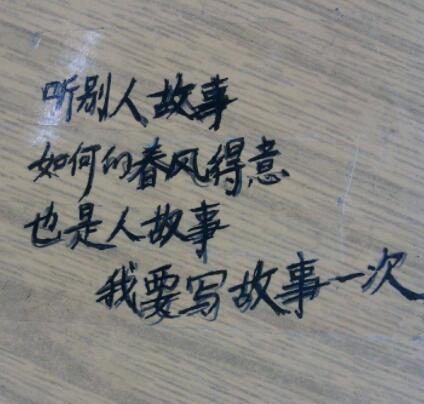 听别人故事
如何的春风得意
也是人故事
我要写故事一次